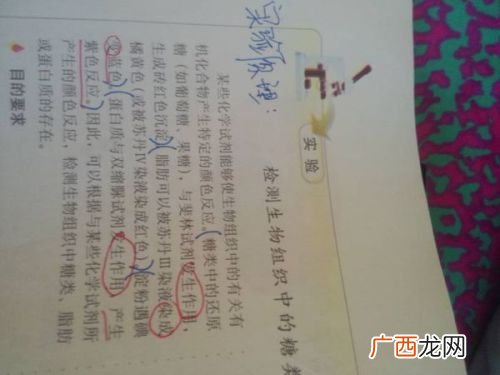 实验原理：
实验
检测生物组织中的糖类
某些化学试剂能够使生物组织中的有关有
机化合物产生特定的颜色反应。糖类中的还原
糖（如葡萄糖、果糖），与斐林试剂发生作用，
生成砖红色沉淀。脂肪可以被苏丹Ⅲ染液染成
橘黄色（或被苏丹Ⅳ染液染成红色）。淀粉遇碘
变蓝色。蛋白质与双缩脲试剂发生作用，产生
紫色反应。因此，可以根据与某些化学试剂所
产生的颜色反应，检测生物组织中糖类、脂肪
或蛋白质的存在。
目的要求
广西龙网